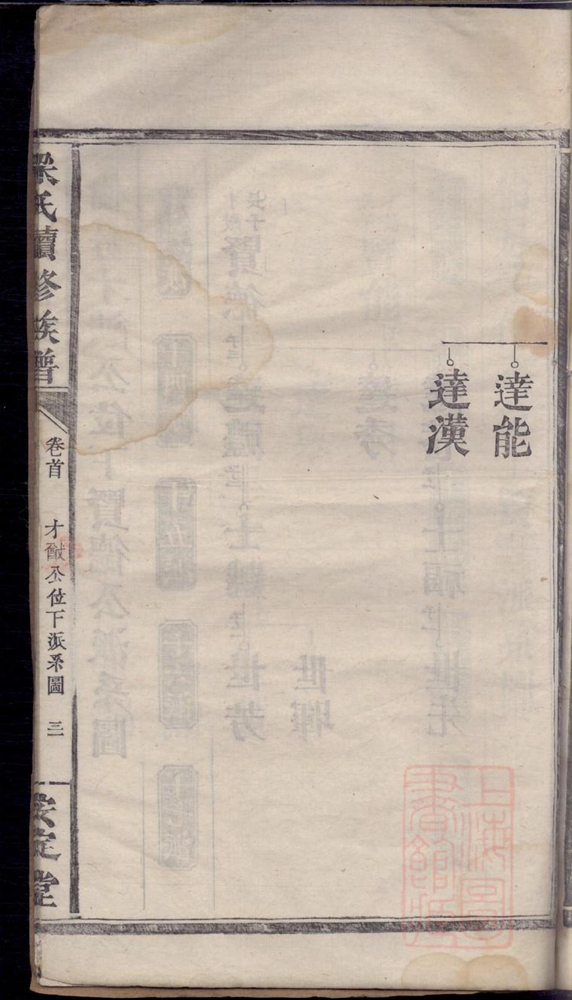 達能
達漢
梁氏續修族譜
卷首
才猷公位下派系圖
三
安定堂